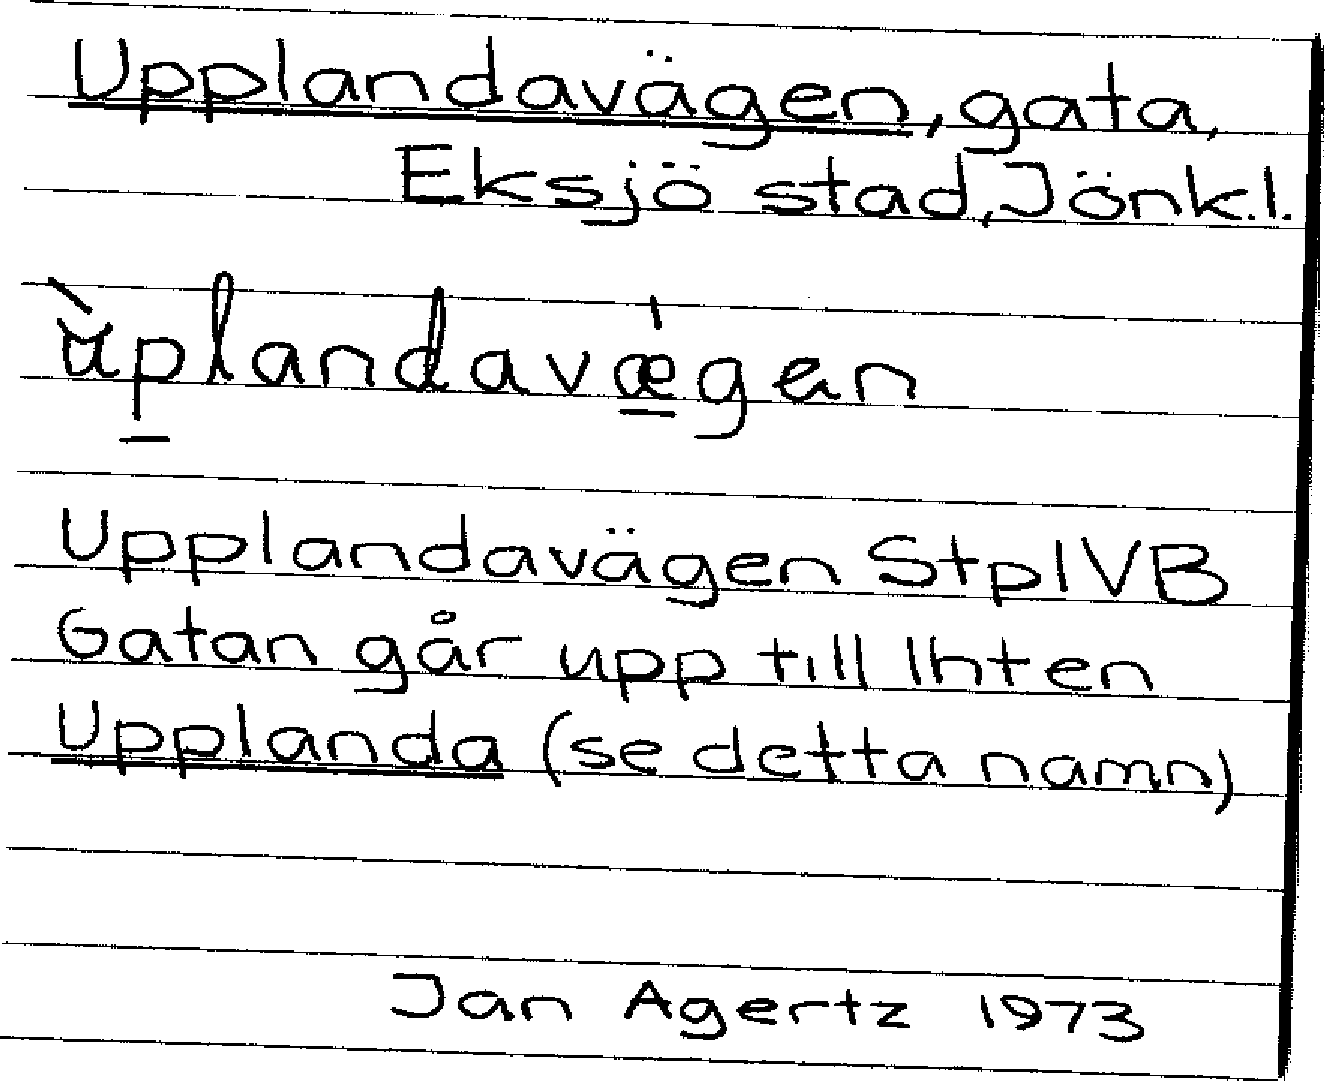 Upplandavägen, gata,
Eksjö stad, Jönk.l.
ùplandavǽgen
Upplandavägen StplVB
Gatan går upp till lhten
Upplanda (se detta namn)
Jan Agertz 1973